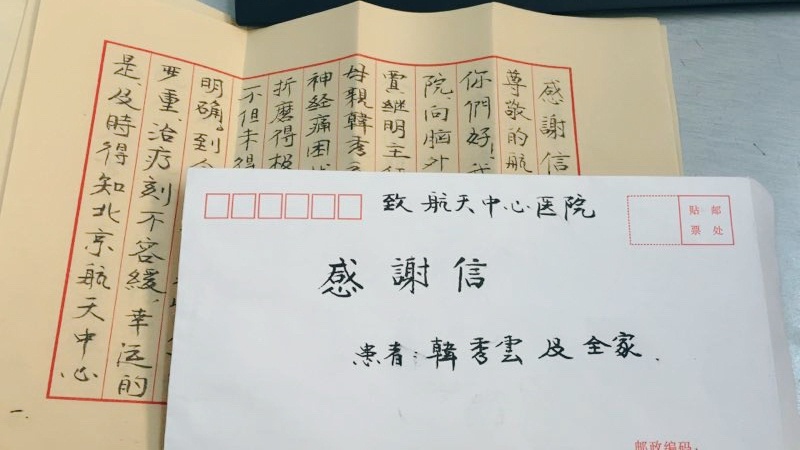 感謝信
尊敬的航
你們好,我
院,向脑外
継明主
母親韓秀
神经痛困
折磨得极
不但未得
明确。到
严重,治疗刻不容緩,幸运的
是,及時得知北京航天中心
一.
致 航天中心医院
贴 邮
票 处
感謝信
患者:韓秀雲及全家.
邮政编码: